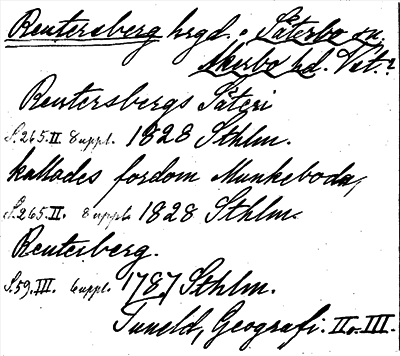 Reutersberg hrgd. Säterbo sn.
Åkerbo hd. Vstm.
Reutersbergs Säteri
S. 265. II. 8 uppl. 1828 Sthlm.
kallades fordom Munkeboda,
S. 265. II. 8 uppl. 1828 Sthlm.
Reuterberg.
S. 59. III. 6 uppl. 1787 Sthlm.
Tuneld, Geografi. II o. III.